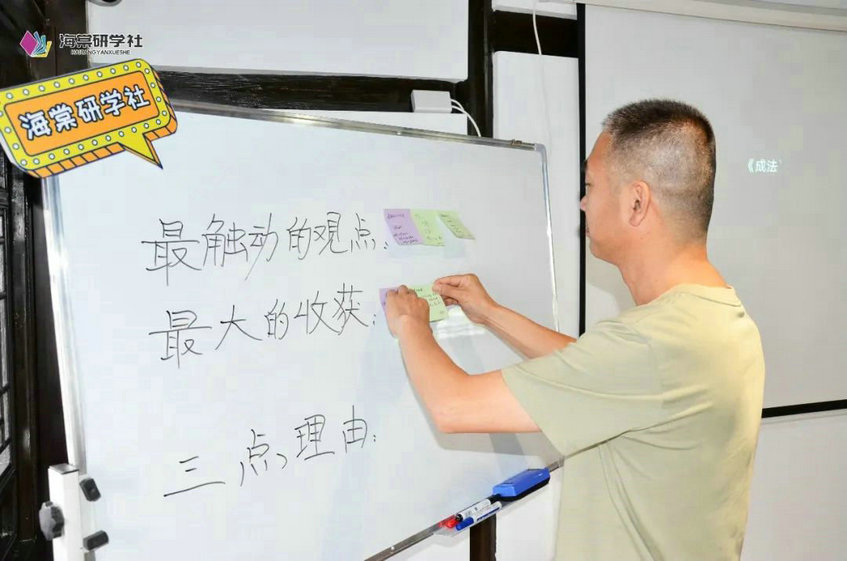 海棠研学社
HAITANGYANXUESHE
海棠研学社
《成法
最触动的观点:
最大的收获:
三点理由: